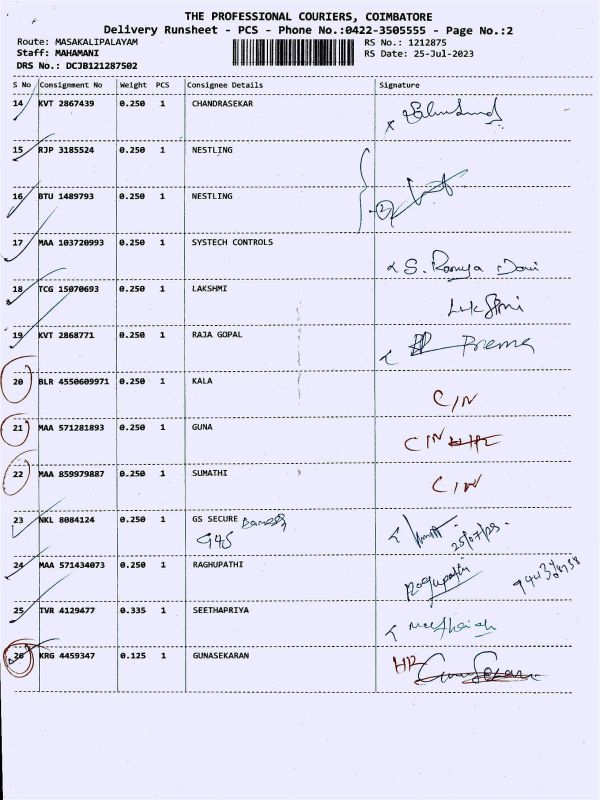 THE PROFESSIONAL COURIERS, COIMBATORE
Delivery Runsheet - PCS - Phone No.:0422-3505555 - Page No.:2
Route: MASAKALIPALAYAM RS No.: 1212875
Staff: MAHAMANI RS Date: 25-Jul-2023
DRS No.: DCJB121287502
S No Consignment No Weight PCS Consignee Details Signature
14 KVT 2867439 0.250 1 CHANDRASEKAR
15 RJP 3185524 0.250 1 NESTLING
16 BTU 1489793 0.250 1 NESTLING
17 MAA 103720993 0.250 1 SYSTECH CONTROLS
S. Ramya Devi
18 TCG 15070693 0.250 1 LAKSHMI
Lakshmi
19 KVT 2868771 0.250 1 RAJA GOPAL
Prema
20 BLR 4550609971 0.250 1 KALA
C/N
21 MAA 571281893 0.250 1 GUNA
C/N
22 MAA 859979887 0.250 1 SUMATHI
C/N
23 NKL 8084124 0.250 1 GS SECURE
945 25/07/23.
24 MAA 571434073 0.250 1 RAGHUPATHI
Ragupathi
25 TVR 4129477 0.335 1 SEETHAPRIYA
26 KRG 4459347 0.125 1 GUNASEKARAN
HR Gunasekaran